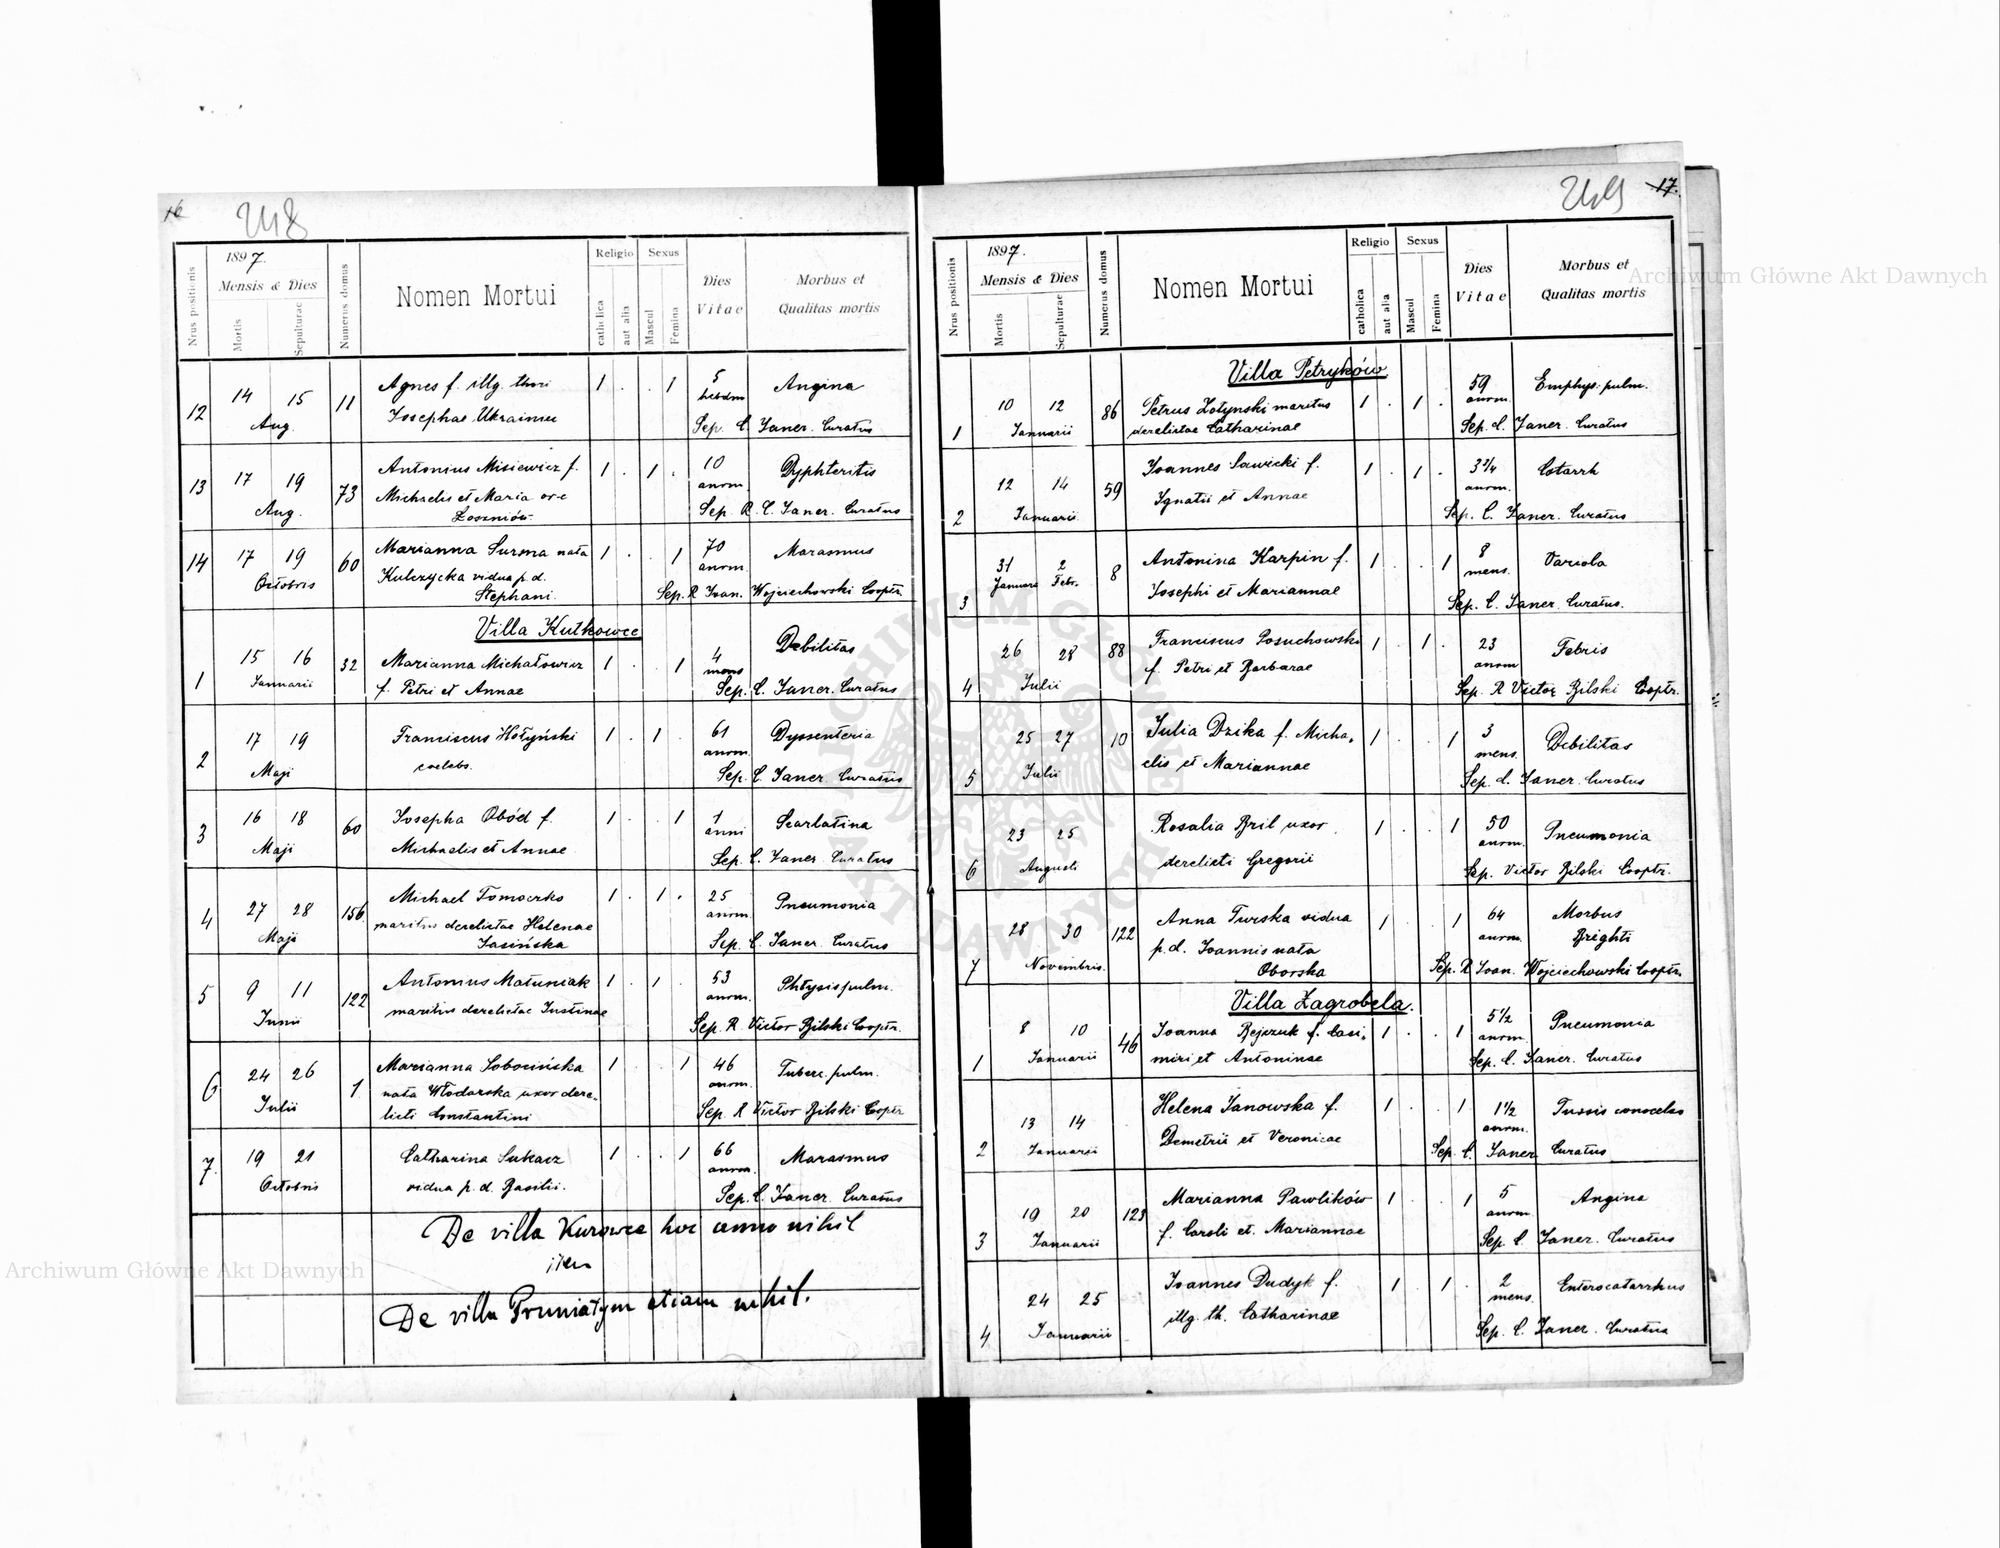 16
248
1897.
Nrus positionis
Mensis & Dies
Mortis
Sepulturae
Numerus domus
Nomen Mortui
Religio
catholica
aut alia
Sexus
Mascul
Femina
Dies Vitae
Morbus et Qualitas mortis
12 14 15 Aug. 11 Agnes f. illg. thori 1 . . 1 5 hebdm Angina
Josephae Ukrainiec Sep. C. Janer. Curatus
13 17 19 Aug. 73 Antonius Misiewicz f. 1 . 1 . 10 annm. Dyphteritis
Michaelis et Maria ore
Łoszniów. Sep. R. C. Janer. Curatus
14 17 19 Octobris 60 Marianna Surma nata 1 . . 1 70 annm. Marasmus
Kulczycka vidua p. d.
Stephani. Sep. R. Joan. Wojciechowski Cooptr.
Villa Kutkowce
1 15 16 Januarii 32 Marianna Michałowicz 1 . . 1 4 mens Debilitas
f. Petri et Annae Sep. C. Janer. Curatus
2 17 19 Maji Franciscus Hołyński 1 . 1 . 61 annm. Dyssenteria
coelebs. Sep. C. Janer. Curatus
3 16 18 Maji 60 Josepha Obód f. 1 . . 1 1 anni Scarlatina
Michaelis et Annae Sep. C. Janer. Curatus
4 27 28 Maji 156 Michael Tomoczko 1 . 1 . 25 annm. Pneumonia
maritus derelictae Helenae
Jasińska Sep. C. Janer. Curatus
5 9 11 Junii 122 Antonius Matuniak 1 . 1 . 53 annm. Phtysis pulm.
maritus derelictae Justinae Sep. R. Victor Bilski Cooptr.
6 24 26 Julii 1 Marianna Sobocińska 1 . . 1 46 annm. Tuberc. pulm.
nata Włodarska uxor dere-
licti Constantini Sep. R. Victor Bilski Cooptr
7. 19 21 Octobris Catharina Sukacz 1 . . 1 66 annm. Marasmus
vidua p. d. Basilii. Sep. C. Janer. Curatus
De villa Kurowce hoc anno nihil
De villa Proniatyn etiam nihil.
249
17.
1897.
Nrus positionis
Mensis & Dies
Mortis
Sepulturae
Numerus domus
Nomen Mortui
Religio
catholica
aut alia
Sexus
Mascul
Femina
Dies Vitae
Morbus et Qualitas mortis
Villa Petryków
1 10 12 Januarii 86 Petrus Zołynski maritus 1 . 1 . 59 annm. Emphys. pulm.
derelictae Catharinae Sep. C. Janer. Curatus
2 12 14 Januarii 59 Joannes Sawicki f. 1 . 1 . 3 2/4 annm. Catarrh
Ignatii et Annae Sep. C. Janer. Curatus
3 31 Januarii 2 Febr. 8 Antonina Karpin f. 1 . . 1 8 mens. Variola
Josephi et Mariannae Sep. C. Janer. Curatus.
4 26 28 Julii 88 Franciscus Posuchowski 1 . 1 . 23 annm Febris
f. Petri et Barbarae Sep. R. Victor Bilski Cooptr.
5 25 27 Julii 10 Julia Dzika f. Micha- 1 . . 1 3 mens. Debilitas
elis et Mariannae Sep. C. Janer. Curatus
6 23 25 Augusti Rosalia Bril uxor 1 . . 1 50 annm. Pneumonia
derelicti Gregorii Sep. Victor Bilski Cooptr.
7 28 30 Novembris. 122 Anna Turska vidua 1 . . 1 64 annm. Morbus
p. d. Joannis nata Brighti
Oborska Sep. R. Joan. Wojciechowski Cooptr.
Villa Zagrobela.
1 8 10 Januarii 46 Joanna Bejczuk f. Casi- 1 . . 1 5 1/2 annm. Pneumonia
miri et Antoninae Sep. C. Janer. Curatus
2 13 14 Januarii Helena Janowska f. 1 . . 1 1 1/2 annm. Tussis
Demetrii et Veronicae Sep. C. Janer Curatus
3 19 20 Januarii 123 Marianna Pawlików 1 . . 1 5 annm. Angina
f. Caroli et. Mariannae Sep. C. Janer. Curatus
4 24 25 Januarii Joannes Dudyk f. 1 . 1 . 2 mens. Enterocatarrhus
illg. th. Catharinae Sep. C. Janer. Curatus
Archiwum Główne Akt Dawnych
Archiwum Główne Akt Dawnych
ARCHIWUM GŁÓWNE AKT DAWNYCH